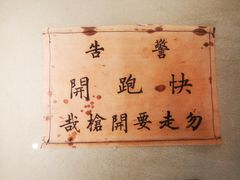 警告
快跑開
勿走要開槍哉